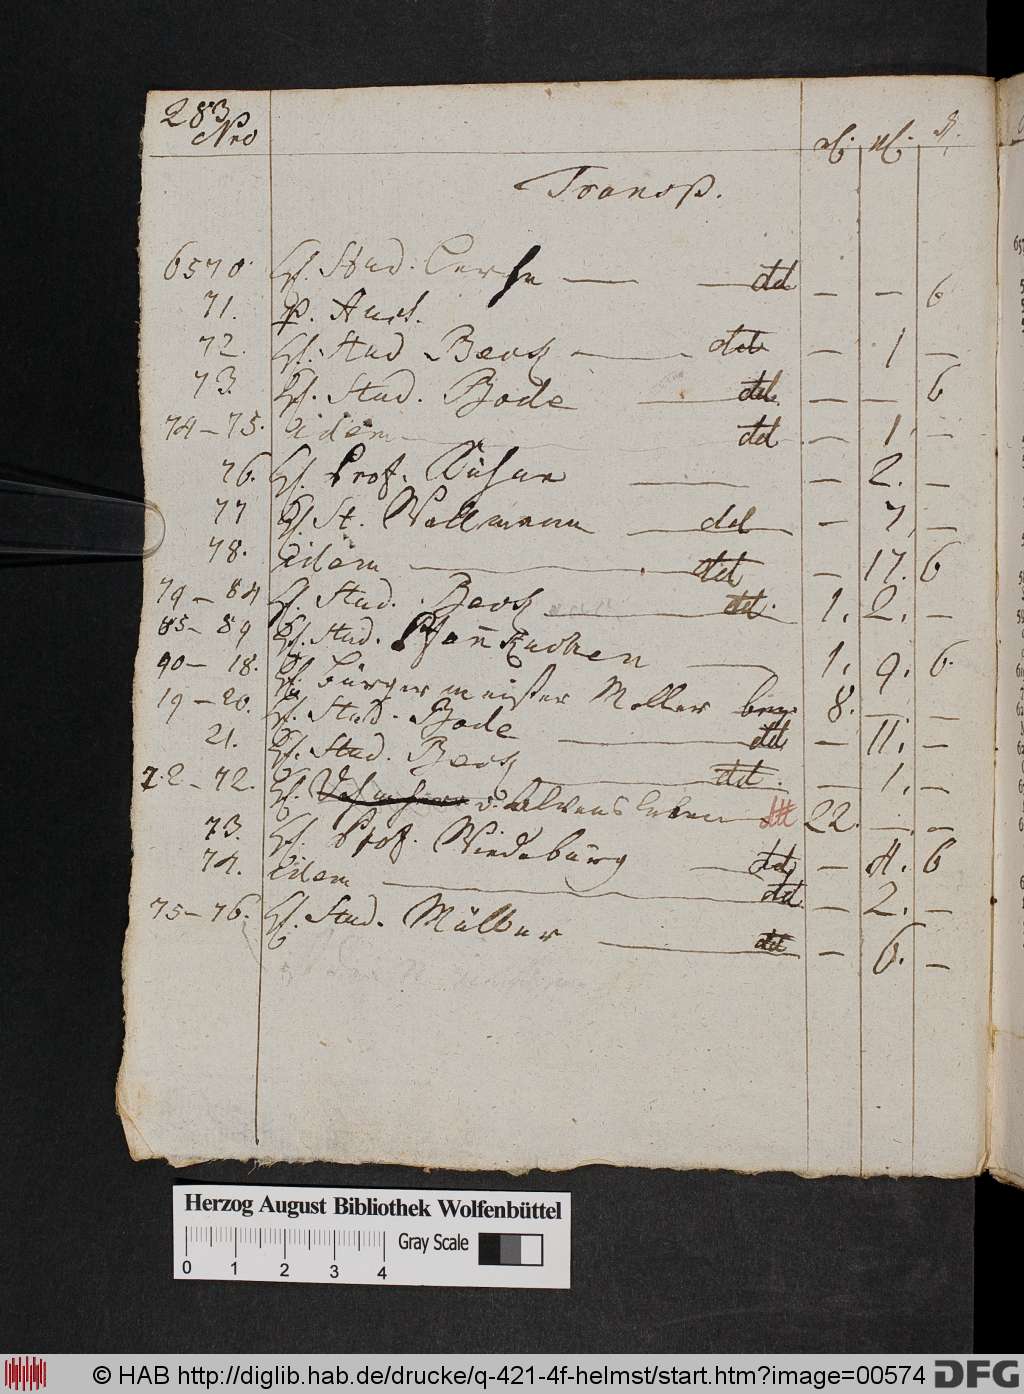 283
Nro
Transp.
6570. H. Stud. Lerche — dd — — 6
71. p. Auct.
72. H. Stud Berg — dd — 1 —
73. H. Stud. Bode — dd — — 6
74–75. idem — dd — 1. —
76. H. Prof. Kühne — — 2. —
77 H. St. Wollmann — dd — 7 —
78. idem — dd — 17. 6
79–84 H. Stud. Berg — dd. 1. 2. —
85–89 H. Stud. Pfannkuchen — 1. 9. 6.
90–18. H. Bürgermeister Moller 8. — —
19–20. H. Stud. Bode — dd — 11. —
21. H. Stud. Berg — dd. — 1. —
22–72. H. v. Alvensleben — dtt 22. — —
73. H. Prof. Wiedeburg — dd — 4. 6
74. idem — dd — 2. —
75–76. H. Stud. Müller — dd — 6. —
Herzog August Bibliothek Wolfenbüttel
Gray Scale
0 1 2 3 4
© HAB http://diglib.hab.de/drucke/q-421-4f-helmst/start.htm?image=00574 DFG